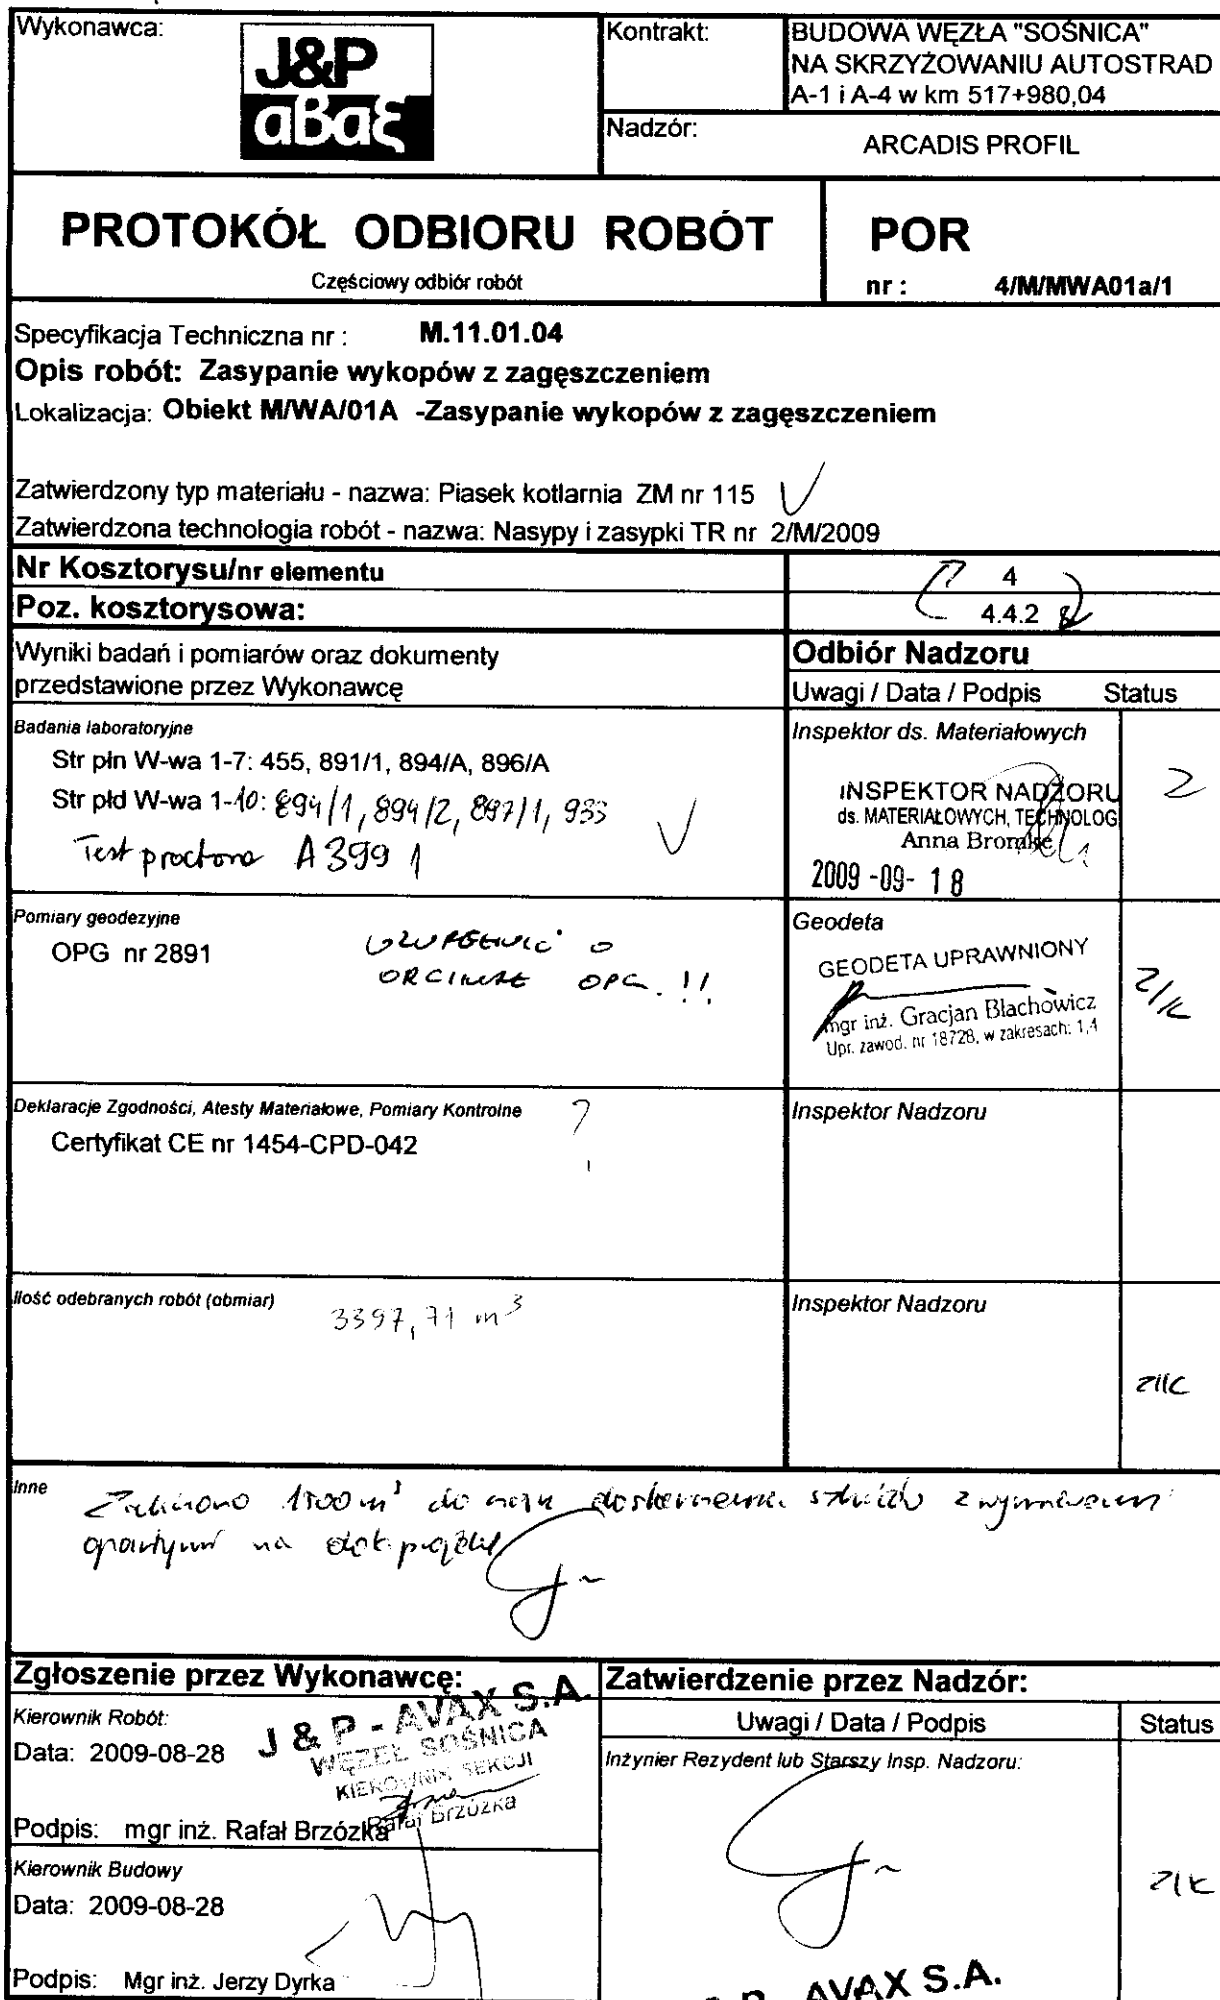 Wykonawca:
J&P
aBaξ
Kontrakt:
BUDOWA WĘZŁA "SOŚNICA"
NA SKRZYŻOWANIU AUTOSTRAD
A-1 i A-4 w km 517+980,04
Nadzór:
ARCADIS PROFIL
PROTOKÓŁ ODBIORU ROBÓT
Częściowy odbiór robót
POR
nr : 4/M/MWA01a/1
Specyfikacja Techniczna nr : M.11.01.04
Opis robót: Zasypanie wykopów z zagęszczeniem
Lokalizacja: Obiekt M/WA/01A -Zasypanie wykopów z zagęszczeniem
Zatwierdzony typ materiału - nazwa: Piasek kotlarnia ZM nr 115
Zatwierdzona technologia robót - nazwa: Nasypy i zasypki TR nr 2/M/2009
Nr Kosztorysu/nr elementu
4
Poz. kosztorysowa:
4.4.2
Wyniki badań i pomiarów oraz dokumenty
przedstawione przez Wykonawcę
Odbiór Nadzoru
Uwagi / Data / Podpis Status
Badania laboratoryjne
Str płn W-wa 1-7: 455, 891/1, 894/A, 896/A
Str płd W-wa 1-10: 894/1, 894/2, 897/1, 933
Test proctora A 399 1
Inspektor ds. Materiałowych
INSPEKTOR NADZORU
ds. MATERIAŁOWYCH, TECHNOLOG
Anna
2009 -09- 18
Z
Pomiary geodezyjne
OPG nr 2891
UZUPEŁNIĆ O
OPG. !!
Geodeta
GEODETA UPRAWNIONY
mgr inż. Gracjan Błachowicz
Upr. zawod. nr 18728, w zakresach: 1,4
Z/K
Deklaracje Zgodności, Atesty Materiałowe, Pomiary Kontrolne ?
Certyfikat CE nr 1454-CPD-042
Inspektor Nadzoru
Ilość odebranych robót (obmiar)
3397,71 m³
Inspektor Nadzoru
Z/K
Inne
1500 m³ do
na
Zgłoszenie przez Wykonawcę:
Kierownik Robót:
Data: 2009-08-28
J & P - AVAX S.A.
WĘZEŁ SOŚNICA
KIEROWNIK SEKCJI
Rafał Brzózka
Podpis: mgr inż. Rafał Brzózka
Kierownik Budowy
Data: 2009-08-28
Podpis: Mgr inż. Jerzy Dyrka
Zatwierdzenie przez Nadzór:
Uwagi / Data / Podpis Status
Inżynier Rezydent lub Starszy Insp. Nadzoru:
Z/K
AVAX S.A.